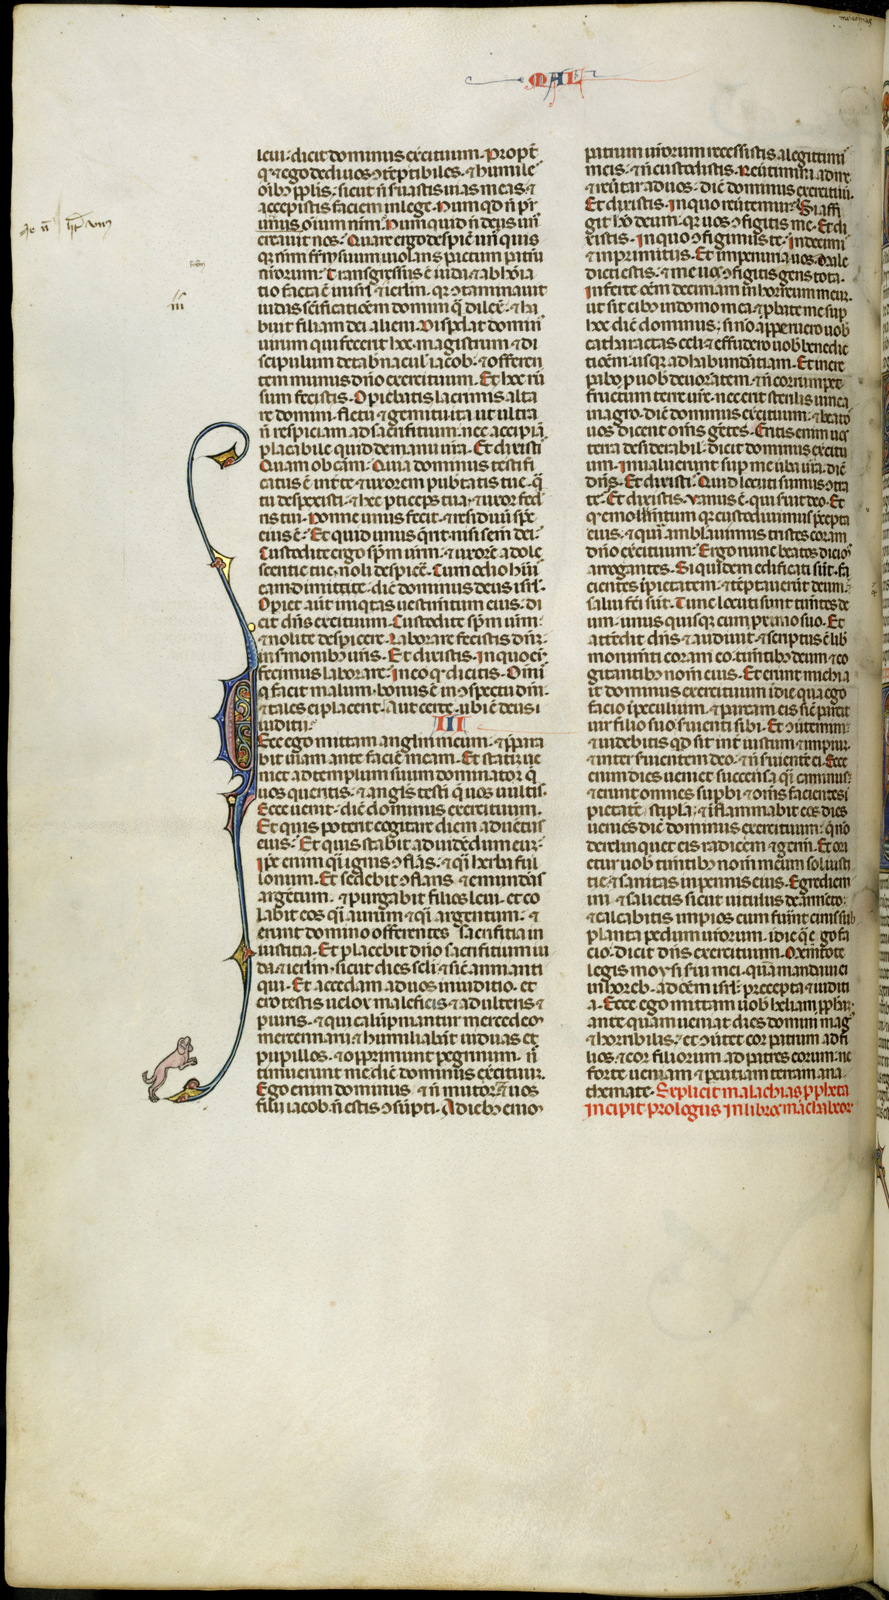 MAL
leui: dicit dominus exercituum. Propt̄
q̄ ⁊ ego dedi uos ↄtēptibiles. ⁊ humiles
oībꝰ pplīs. sicut n̄ suastis uias meas. ⁊
accepistis faciem in lege. Numqd n̄ pr̄
unus oīum nr̄m. Numquid n̄ deus unꝰ
creauit nos. Quare ergo despic̄ un̄ quis
qꝫ nr̄m frēm suum uiolans pactum patrū
nr̄orum. Transgressus ē iuda. ⁊ abhoīa
tio facta ē in isrl̄. ⁊ ierlm̄. qꝛ ↄtaminauit
iudas sc̄ificatiōem domini q̄ dilex̄. ⁊ ha
buit filiam dei alieni. Disp̄dat domin̄
uirum qui fecerit hoc. magistrum ⁊ di
scipulum de tab̄nacul̄ iacob. ⁊ offeren
tem munus dn̄o exercituum. Et hoc rū
sum fecistis. Opiebatis lacrimis alta
re domini. fletu ⁊ gemitu ita ut ultra
n̄ respiciam ad sacrificium. nec accipiā
placabile quid de manu ur̄a. Et dixisti
Quam ob cām. Quia dominus testifi
catus ē int̄ te ⁊ uxorem pub̄tatis tue. q̄
tu despexisti. ⁊ hec pticeps tua. ⁊ uxor fed
ris tui. Nonne unus fecit. ⁊ residuū sp̄c
eius ē. Et quid unus q̄rit nisi sem̄ dei.
Custodite ergo sp̄m ur̄m. ⁊ uxorē adole
scentie tue. noli despicē. Cum odio hūis
eam dimitte. dic̄ dominus deus isrl̄.
Opiet aūt iniq̄tas uestim̄tum eius. di
cit dn̄s exercituum. Custodite sp̄m ur̄m.
⁊ nolite despicere. Laborare fecistis dn̄m
in s̄monibꝰ ur̄is. Et dixistis. In quo eū
fecimus laborare. In eo qꝫ dicitis. Omīs
q̄ facit malum. bonus ē in ↄspectu dn̄i.
⁊ tales ei placent. Aut certe. ubi ē deus i
iuditii.
III
Ecce ego mittam anglm̄ meum. ⁊ p̄para
bit uiam ante faciē meam. Et statī ue
niet ad templum suum dominator q̄
uos queritis. ⁊ angl̄s testī q̄ uos uultis.
Ecce uenit. dic̄ dominus exercituum.
Et quis poterit cogitare diem aduētus
eius. Et quis stabit ad uidēdum eum.
Ip̄e enim q̄i ignis ↄflās. ⁊ q̄i herba ful
lonum. Et sedebit ↄflans ⁊ emundās
argētum. ⁊ purgabit filios leui. et co
labit eos q̄i aurum ⁊ q̄i argentum. ⁊
erunt domino offerentes sacrificia in
iusticia. Et placebit dn̄o sacrificium iu
da ⁊ ierlm̄. sicut dies scl̄i ⁊ sic̄ anni anti
qui. Et accedam ad uos in iuditio. et
ero testis uelox maleficis ⁊ adulteris ⁊
piuris. ⁊ qui calūpniantur mercedem
mercennarii ⁊ humiliabit uiduas et
pupillos. ⁊ opprimunt pegrinum. n̄
timuerunt me dic̄ dominus exercituū.
Ego enim dominus ⁊ n̄ mutor. ⁊ uos
filii iacob. n̄ estis ↄsūpti. A diebꝰ enim
patrum ur̄orum recessistis a legittimis
meis. ⁊ n̄ custodistis. Reu̇timini ad me.
⁊ reu̇tar ad uos. dic̄ dominus exercituū.
Et dixistis. In quo reu̇temur. Si affi
git hō deum. qꝛ uos ↄfigitis me. Et di
xistis. In quo ↄfigimus te. In decimis
⁊ in primitiis. Et in penuria uos. Male
dicti estis. ⁊ me uos ↄfigitis gens tota.
Inferte oēm decimam in horreum meum.
ut sit cibꝰ in domo mea ⁊ pbate me sup
hoc dic̄ dominus. si nō apperuero uob
catharactas celi ⁊ effudero uob benedic
tiōem. usqꝫ ad habundātiam. Et incre
pabo p uob deuoratem. ⁊ n̄ corrumpet
fructum terre ur̄e. nec erit sterilis uinea
in agro. dic̄ dominus exercituum. ⁊ beatos
uos dicent om̄s gētes. Eritis enim uos
terra desiderabil̄. dicit dominus exercitu
um. Inualuerunt sup me ūba ur̄a. dic̄
dn̄s. Et dixisti. Quid locuti sumus ↄtra
te. Et dixistis. Vanus ē. qui s̄uit deo. Et
qꝫ emolumentum qꝛ custodiuimus p̄cepta
eius. ⁊ quia ambulauimus tristes coram
dn̄o exercituum. Ergo nunc beatos dicimꝰ
arrogantes. Si quidem edificati sūt. fa
cientes īpietatem. ⁊ tēptauerūt deum.
salui fc̄i sūt. Tunc locuti sunt tim̄tes de
um. unus quisqꝫ cum proximo suo. Et
attēdit dn̄s ⁊ audiuit. ⁊ scriptus ē lib̄
monim̄ti coram eo. tim̄tibꝰ deum. ⁊ co
gitantibꝰ nom̄ eius. Et erunt michi a
it dominus exercituum ī die qua ego
facio ī peculium. ⁊ parcam eis sic̄ parcit
uir filio suo s̄uienti sibi. Et ↄu̇timini.
⁊ uidebitis qd sit int̄ iustum ⁊ impium.
⁊ inter s̄uientem deo. ⁊ n̄ s̄uientē ei. Ecce
enim dies ueniet succensa q̄i caminus.
⁊ erunt omnes supbi ⁊ om̄s facientes ī
pietatē stipla. ⁊ īflammabit eos dies
ueniēs dic̄ dominus exercituum. q̄ nō
derelinquet eis radicem ⁊ germ̄. Et ori
etur uob tim̄tibꝰ nom̄ meum sol iusti
tie. ⁊ sanitas in pennis eius. Egrediem
ini ⁊ salietis sicut uitulus de armēto.
⁊ calcabitis impios cum fuīnt cinis sub
planta pedum ur̄orum. ī die q̄ ego fa
cio. dicit dn̄s exercituum. Mem̄tote
legis moysi s̄ui mei. quā mandaui ei
in horeb. ad oēm isrl̄. precepta ⁊ iuditi
a. Ecce ego mittam uob heliam ppħm.
ante quam ueniat dies domini mag
⁊ horribilis. ⁊ ↄu̇tet cor patrum ad fi
lios. ⁊ cor filiorum ad patres eorum. ne
forte ueniam ⁊ pcutiam terram ana
themate. Explicit malachias ppħeta
Incipit prologus in libros machabeor